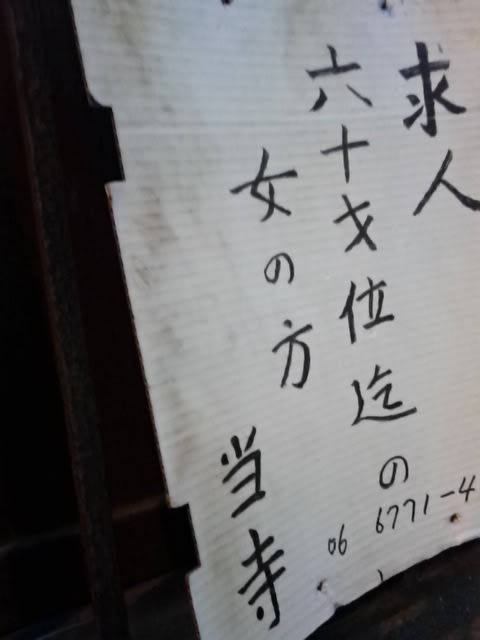 求人
六十才位迄の
女の方
当寺
06 6771-4